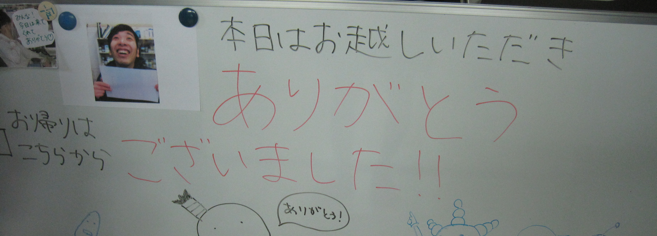 本日はお越しいただき
ありがとう
ございました!!
お帰りは
こちらから
ありがとう!